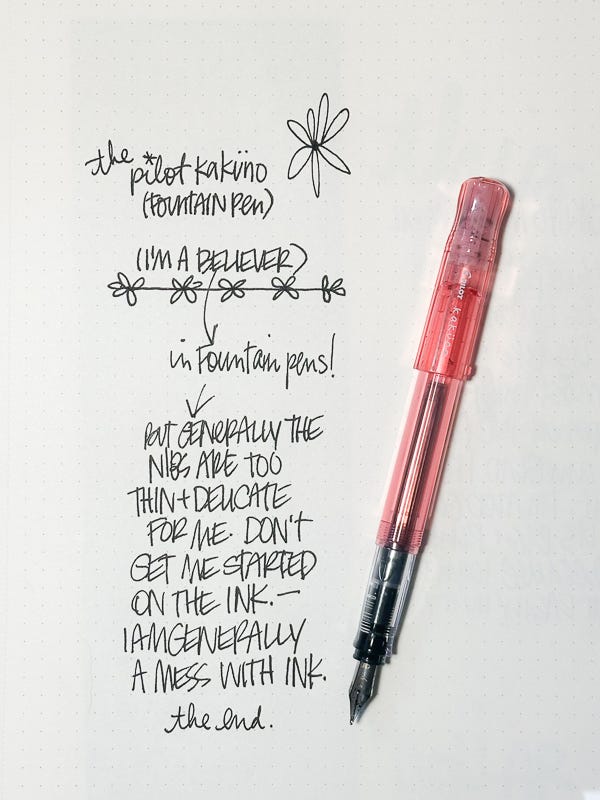 the *pilot kaküno
(fountain pen)
(I'M A BELIEVER)
in fountain pens!
BUT GENERALLY THE
NIBS ARE TOO
THIN + DELICATE
FOR ME. DON'T
GET ME STARTED
ON THE INK. —
I AM GENERALLY
A MESS WITH INK.
the end.
PILOT kaküno